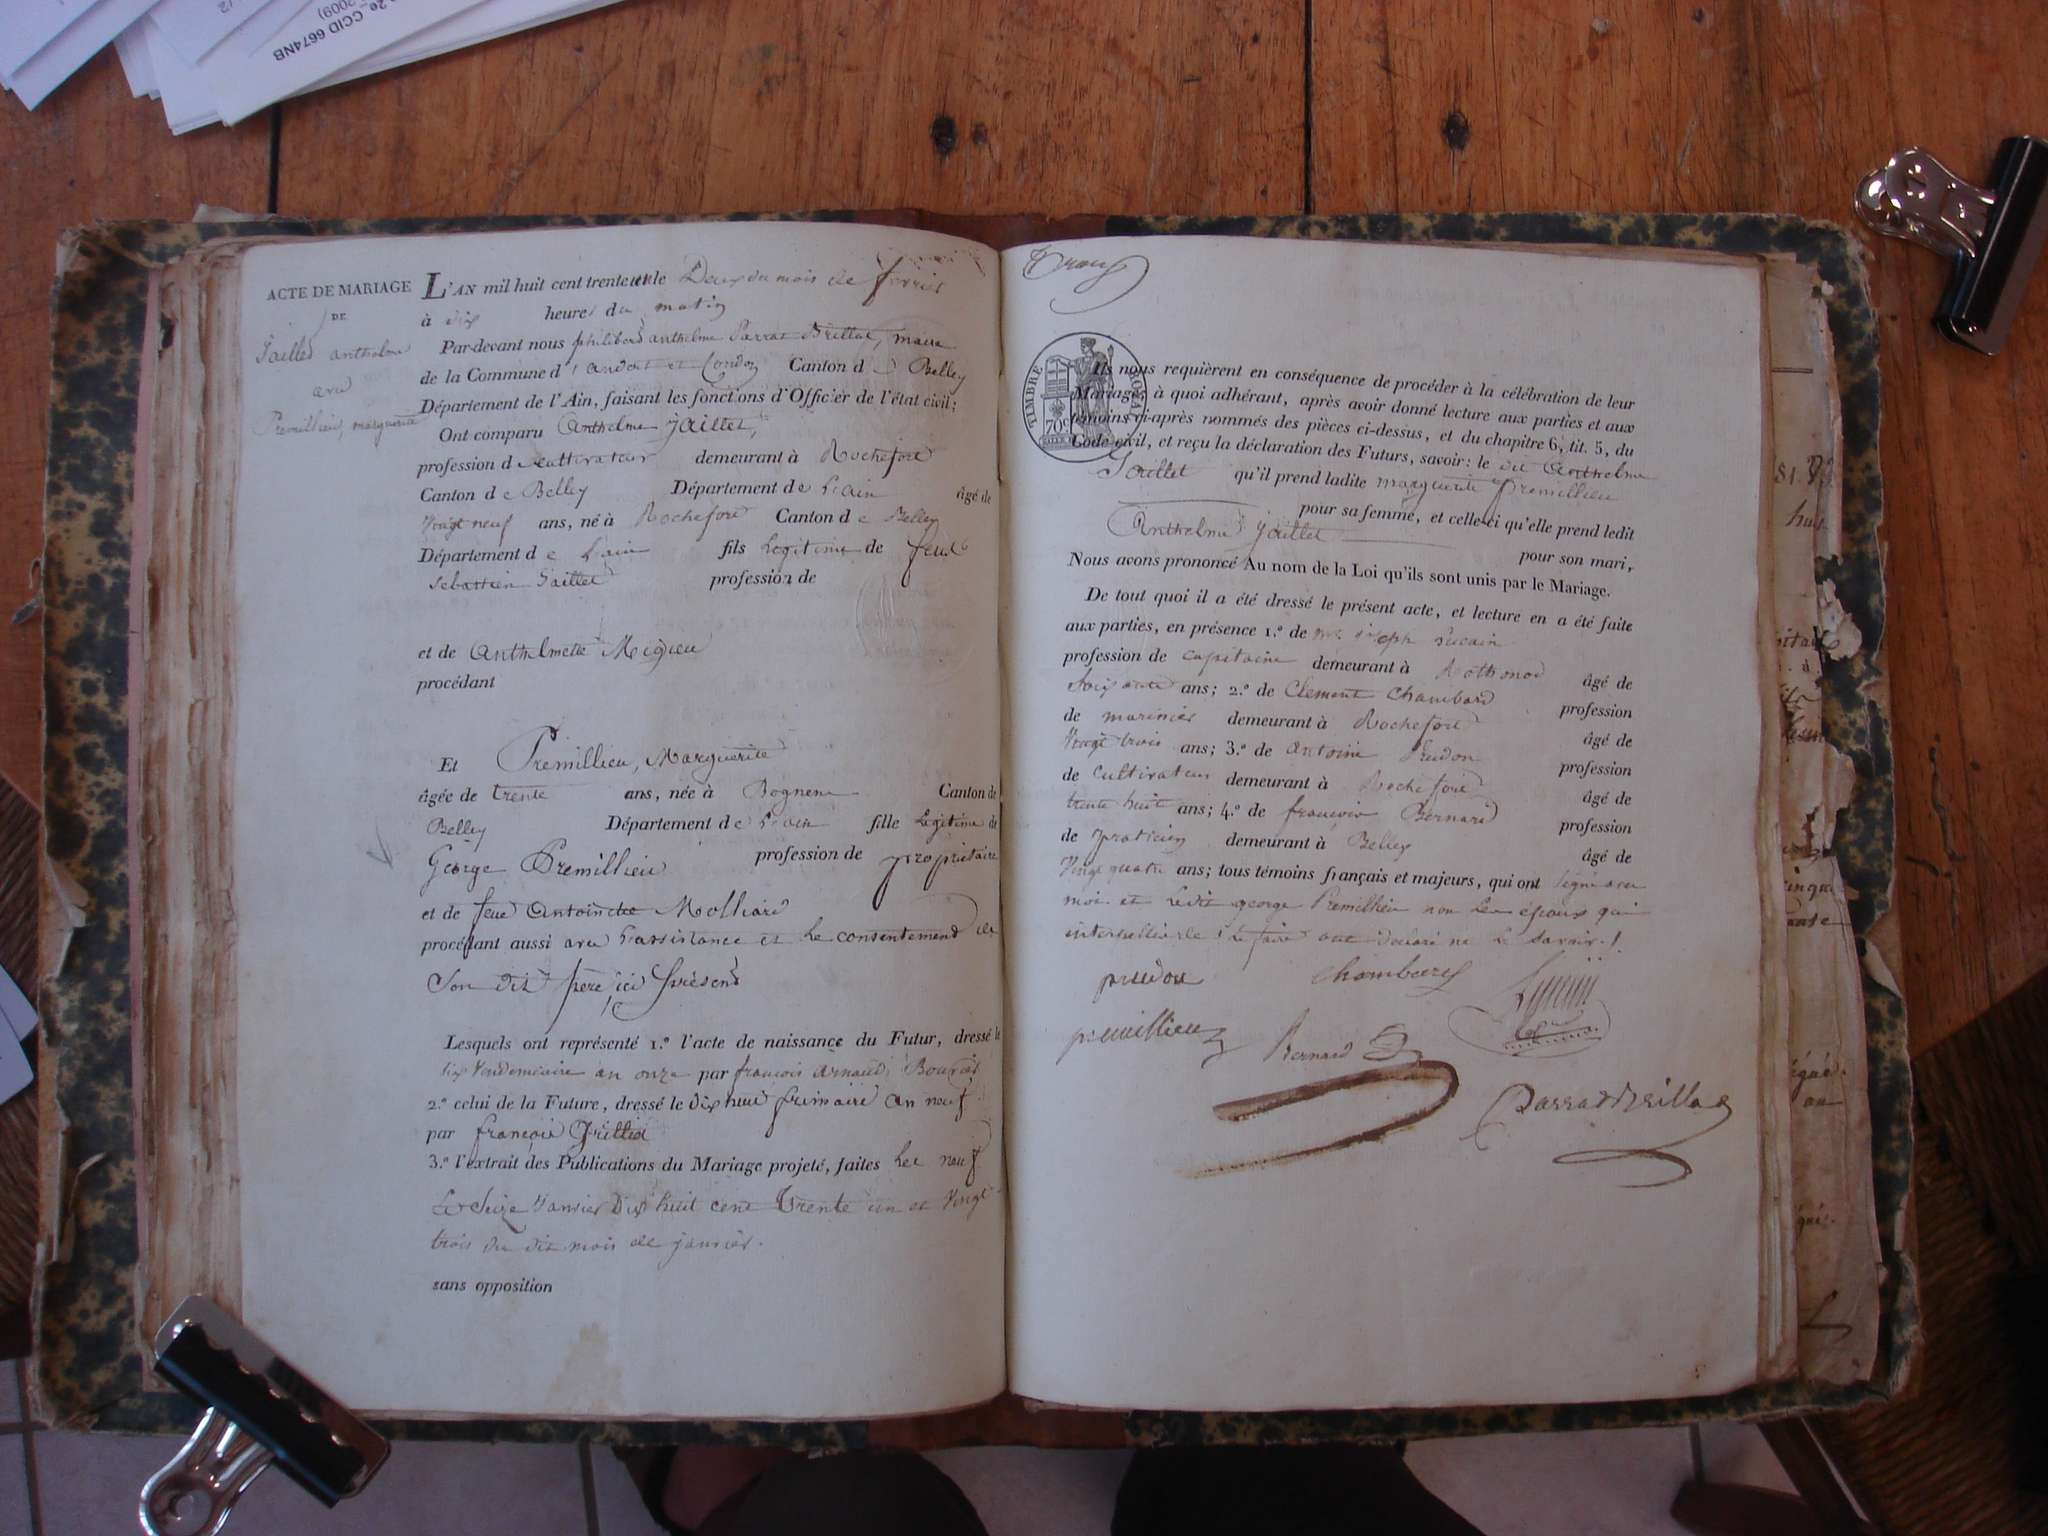 2e_CCID 6674NB
2009)
ACTE DE MARIAGE
DE
Jaillet anthelme
avec
Premillieu, marguerite
L'AN mil huit cent trente et un le Deux du mois de fevrier
à dix heures du matin
Par-devant nous philiberd anthelme Parrat Brillat, maire
de la Commune d'andert et Condon Canton de Belley
Département de l'Ain, faisant les fonctions d'Officier de l'état civil;
Ont comparu Anthelme Jaillet,
profession de cultivateur demeurant à Rochefort
Canton de Belley Département de L'ain âgé de
Vingt neuf ans, né à Rochefort Canton de Belley
Département de L'ain fils Legitime de feu
Sebastien Jaillet profession de
et de Anthelmette Migieu
procédant
Et Premillieu, Marguerite
âgée de trente ans, née à Bognens Canton de
Belley Département de L'ain fille Legitime de
George Premillieu profession de proprietaire
et de feue Antoinette Molliard
procédant aussi avec L'assistance et Le consentement de
Son dit père, ici présend
Lesquels ont représenté 1.º l'acte de naissance du Futur, dressé le
six Vendemiaire an onze par françois Arnaud,
2.º celui de la Future, dressé le dix huit frimaire an neuf
par françois Grillet
3.º l'extrait des Publications du Mariage projeté, faites Les neuf
Le Seize Janvier Dix huit cent Trente un et Vingt
trois du dit mois de janvier.
sans opposition
TIMBRE ROYAL
70c
Ils nous requièrent en conséquence de procéder à la célébration de leur
Mariage, à quoi adhérant, après avoir donné lecture aux parties et aux
témoins ci-après nommés des pièces ci-dessus, et du chapitre 6, tit. 5, du
Code civil, et reçu la déclaration des Futurs, savoir: le dit Anthelme
Jaillet qu'il prend ladite marguerite Premillieu
pour sa femme, et celle-ci qu'elle prend ledit
Anthelme Jaillet pour son mari,
Nous avons prononcé Au nom de la Loi qu'ils sont unis par le Mariage.
De tout quoi il a été dressé le présent acte, et lecture en a été faite
aux parties, en présence 1.º de Mr joseph
profession de capitaine demeurant à Rothonod âgé de
Soixante ans; 2.º de Clement Chambard profession
de marinier demeurant à Rochefort âgé de
Vingt trois ans; 3.º de Antoine Prudon profession
de Cultivateur demeurant à Rochefort âgé de
trente huit ans; 4.º de françois Bernard profession
de praticien demeurant à Belley âgé de
Vingt quatre ans; tous témoins français et majeurs, qui ont Signé avec
moi et Ledit george Premillieu non Les époux qui
interpellés de Le faire ont Declaré ne Le Savoir.
prudon
chambard
premillieu
Bernard
Parrat Brillat